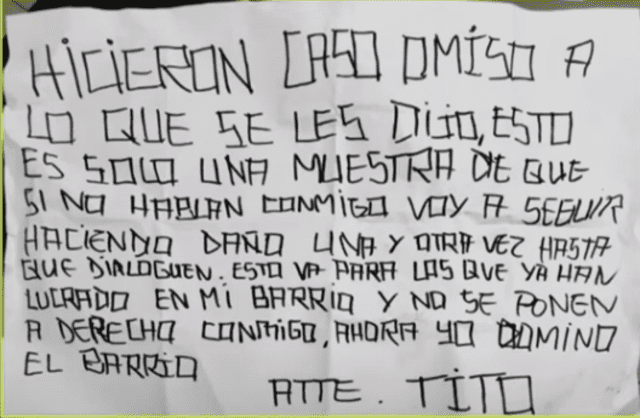 HICIERON CASO OMISO A
LO QUE SE LES DIJO, ESTO
ES SOLO UNA MUESTRA DE QUE
SI NO HABLAN CONMIGO VOY A SEGUIR
HACIENDO DAÑO UNA Y OTRA VEZ HASTA
QUE DIALOGUEN. ESTO VA PARA LOS QUE YA HAN
LUCRADO EN MI BARRIO Y NO SE PONEN
A DERECHO CONMIGO, AHORA YO DOMINO
EL BARRIO
ATTE. TITO